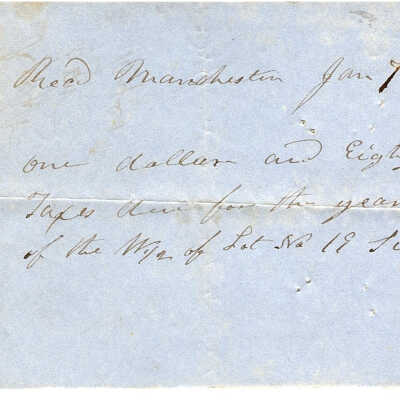 Recd Manchester Jan 7
one dollar and Eigh
Taxes due for the year
of the W½ of Lot No 19